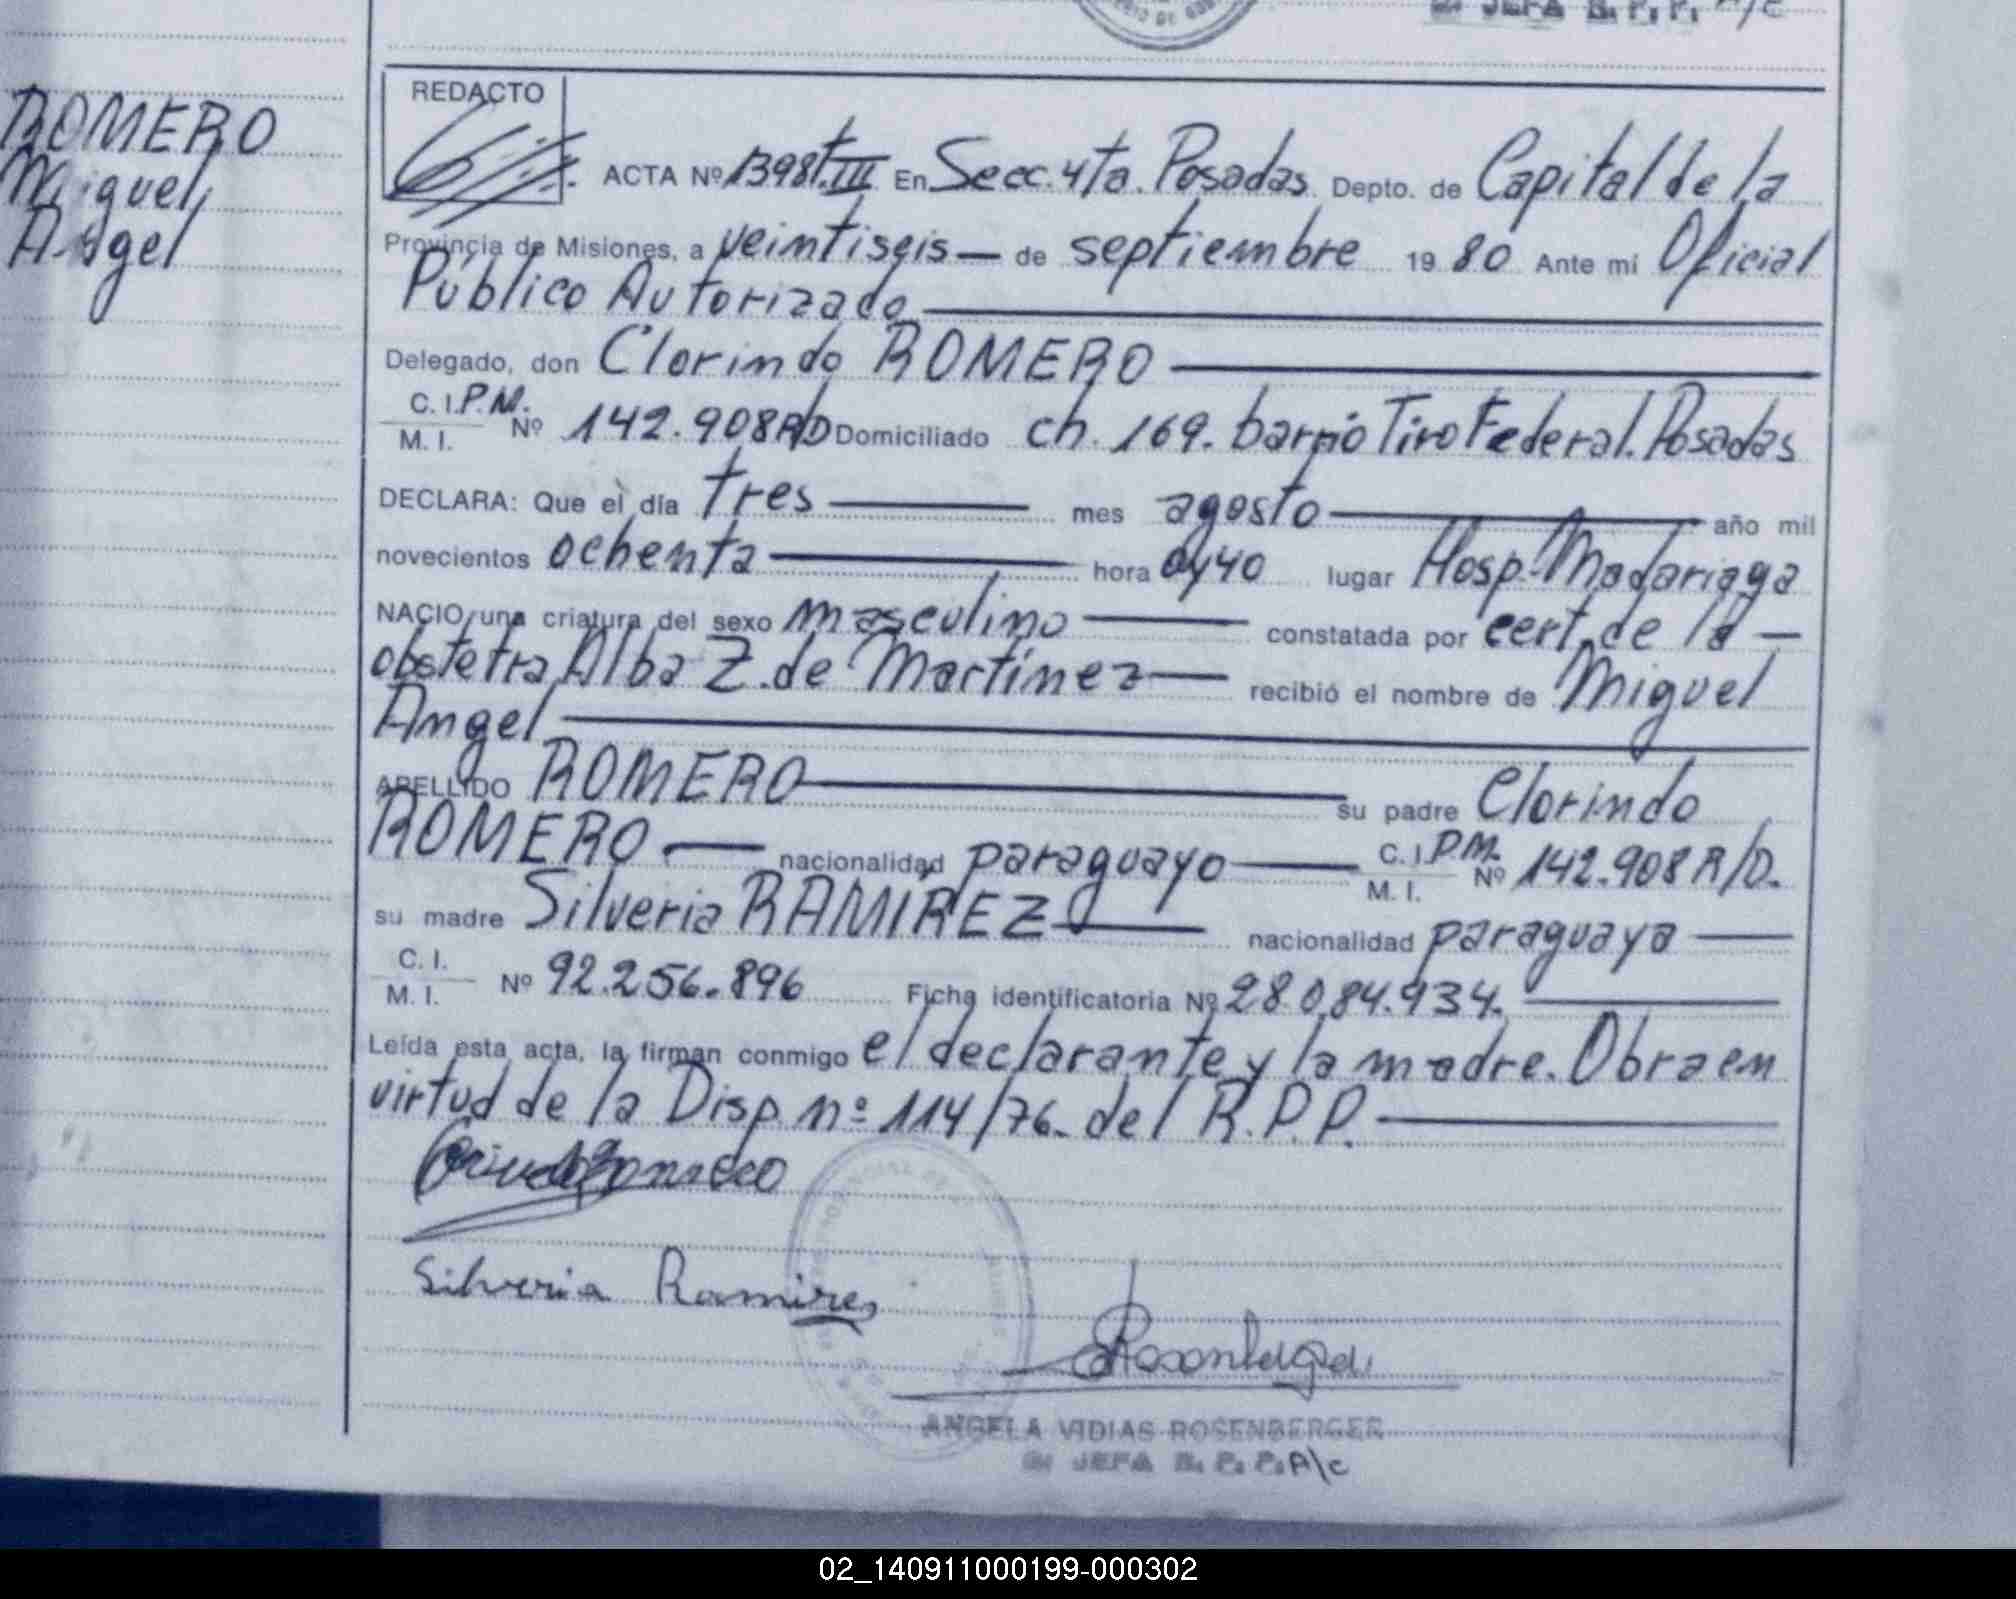 2º JEFA R. P. P. A/c
ROMERO
Miguel
Angel
REDACTO
ACTA Nº 1398 T.III En Secc. 4ta. Posadas Depto. de Capital de la
Provincia de Misiones, a veintiseis — de septiembre 19 80 Ante mi Oficial
Público Autorizado
Delegado, don Clorindo ROMERO
C. I. P.M.
M. I. Nº 142.908 R/D Domiciliado ch. 169. barrio Tiro Federal. Posadas
DECLARA: Que el día tres mes agosto año mil
novecientos ochenta hora 0y40 lugar Hosp. Madariaga
NACIO una criatura del sexo masculino constatada por cert. de la —
obstetra Alba Z. de Martínez recibió el nombre de Miguel
Angel
APELLIDO ROMERO su padre Clorindo
ROMERO — nacionalidad paraguayo C. I. P.M.
M. I. Nº 142.908 R/D.
su madre Silveria RAMÍREZ nacionalidad paraguaya —
C. I.
M. I. Nº 92.256.896 Ficha identificatoria Nº 28.084.934.
Leída esta acta, la firman conmigo el declarante y la madre. Obra en
virtud de la Disp. nº 114/76. del R.P.P.
Silveria Ramires
ANGELA VIDIAS ROSENBERGER
2º JEFA R. P. P. A/c
02_140911000199-000302